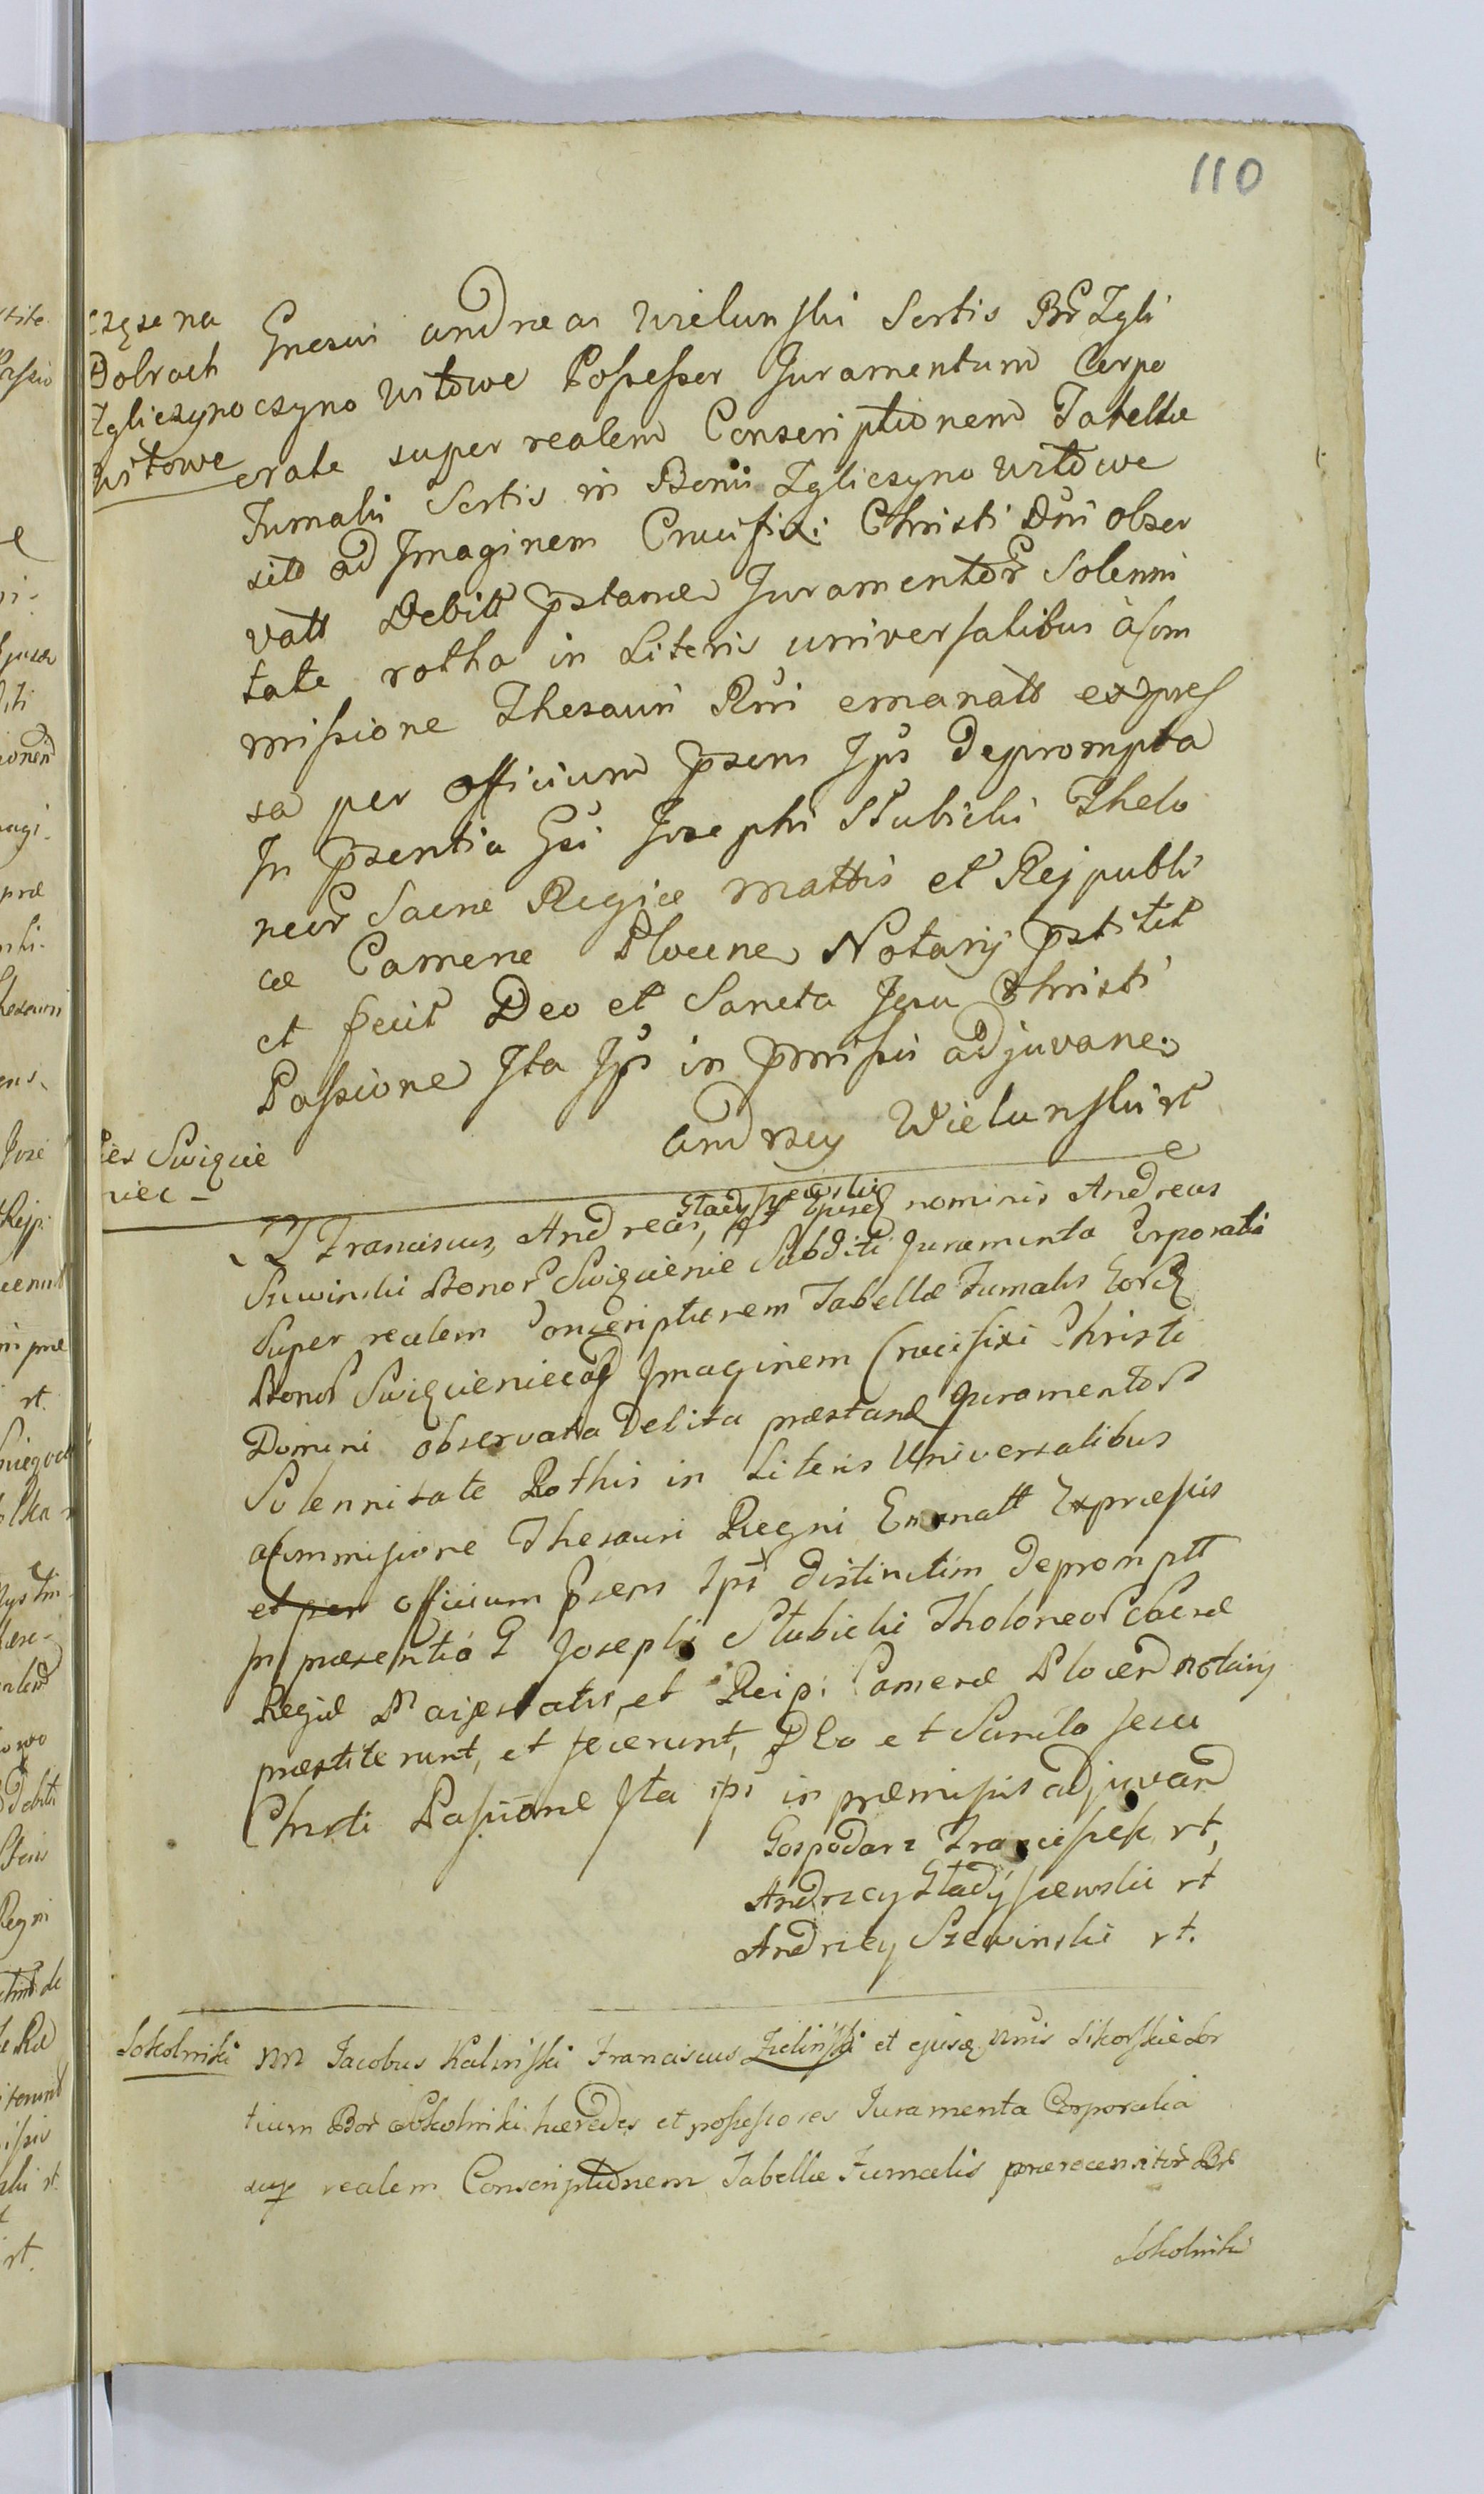 110
część na
Dobrach
Zgliczyno
witowe
Gnesus Andreas Wielunski Sortis Bor Zgli
czyno witowe Possessor Juramentum Corpo
rale super realem Conscriptionem Tabellæ
Fumalis Sortis in Bonis Zgliczyno witowe
sito ad Imaginem Crucifixi Christi Dni obser
vatt Debitt pstand Juramentor Solenni
tate rotha in Literis universalibus à Com
missione Thesauri Rni emanatt expres
sa per officium psens Ips Deprompta
In psentia Gsi Josephi Stubicki Thelo
neor Sacræ Regiæ Mattis et Rejpubli
cæ Cameræ Plocen Notarij pstitit
et fecit Deo et Sancta Jesu Christi
Passione Ita Ips in pmissis adjuvane.
Andrzey Wielunski rt
Wies Swięcie
niec
Franciscus, Andreas, Gładyszewskie et Ejusd nominis Andreas
Szewinski Bonor Swięcienie Subditi Juramenta Corporalia
Super realem Conscriptionem Tabellæ Fumalis Eord
Bonor Swięcieniec ad Imaginem Crucifixi Christi
Domini observata Debita præstand Juramentor
Solennitate Rothis in Literis Universalibus
a Commissione Thesauri Regni Emanatt Expressis
et per officium psens Ips distinctim Depromptt
in præsentia G Josephi Stubicki Tholoneor Sacræ
Regiæ Majestatis, et Reip: Cameræ Plocen Notarij
præstiterunt, et fecerunt, Deo et Sancta Jesu
Christi Passione Ita ips in præmissis adjuvand
Gospodarz Franciszek rt,
Andrzey Gładyszewski rt
Andrzey Szewinski rt.
Sokolniki
NN Jacobus Kalinski Franciscus Zielinski et ejusd Nnis Sikorskie Sor
tium Bor Sokolniki hæredes et possessores Juramenta Corporalia
sup realem Conscriptionem Tabellæ Fumalis prærecensitor Br
Sokolniki